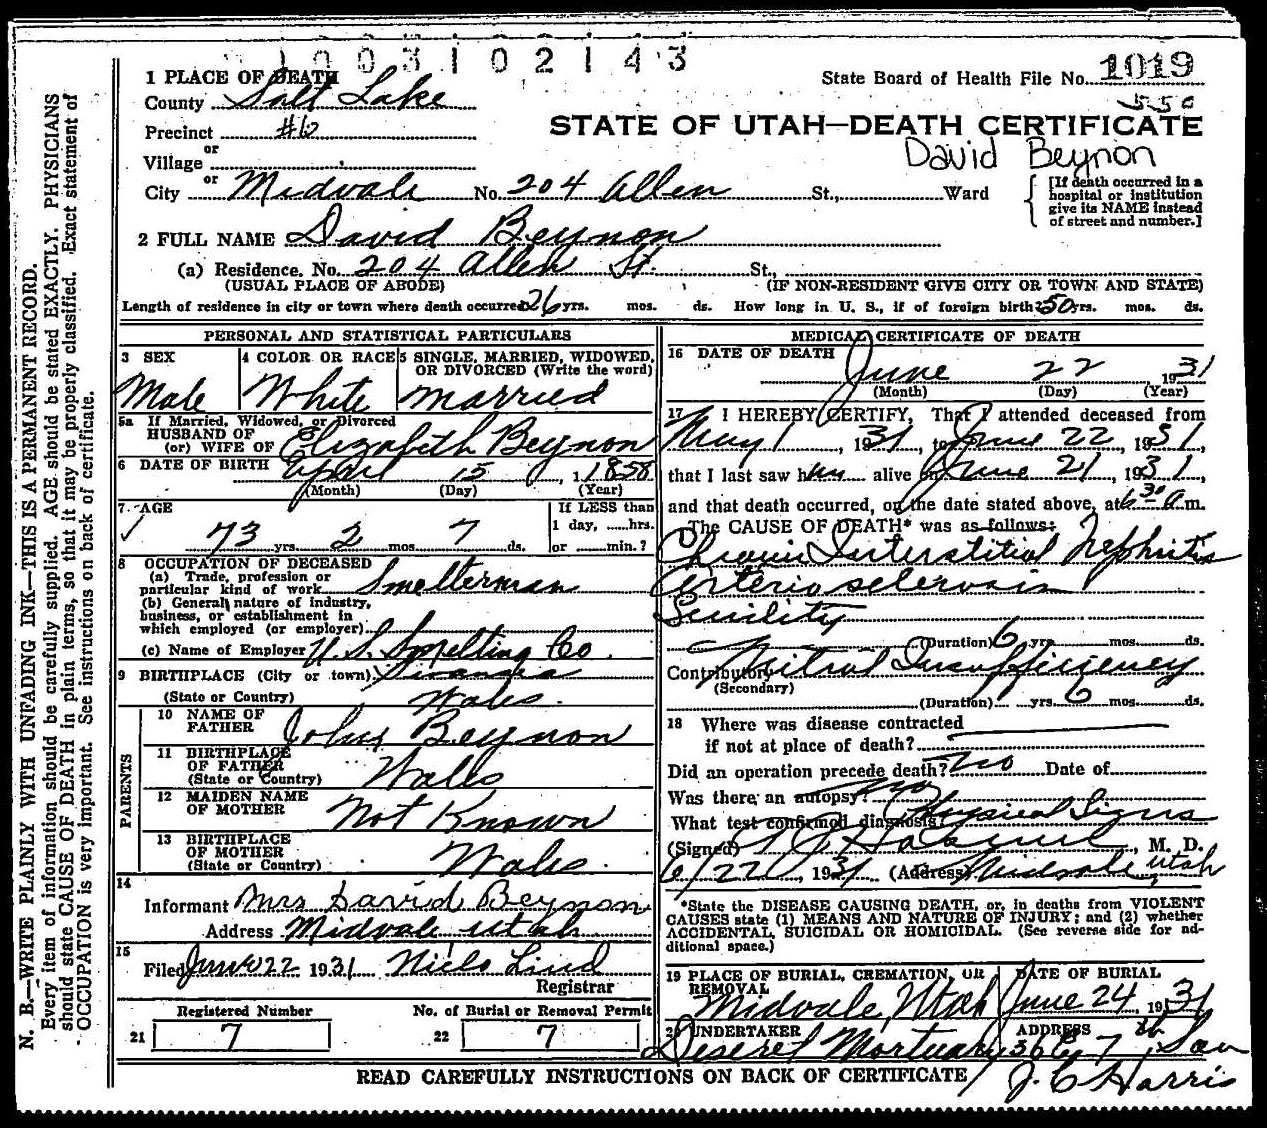 1003102143
1 PLACE OF DEATH
State Board of Health File No. 1019
County Salt Lake
550
Precinct #6
STATE OF UTAH—DEATH CERTIFICATE
or
David Beynon
Village
or
City Midvale No. 204 Allen St., Ward
[If death occurred in a
hospital or institution
give its NAME instead
of street and number.]
2 FULL NAME David Beynon
(a) Residence. No. 204 Allen St. St.,
(USUAL PLACE OF ABODE) (IF NON-RESIDENT GIVE CITY OR TOWN AND STATE)
Length of residence in city or town where death occurred 26 yrs. mos. ds. How long in U. S., if of foreign birth 50 yrs. mos. ds.
PERSONAL AND STATISTICAL PARTICULARS
3 SEX
Male
4 COLOR OR RACE
White
5 SINGLE, MARRIED, WIDOWED,
OR DIVORCED (Write the word)
Married
5a If Married, Widowed, or Divorced
HUSBAND OF
(or) WIFE OF Elizabeth Beynon
6 DATE OF BIRTH April 15, 1 1858
(Month) (Day) (Year)
7 AGE
73 yrs. 2 mos. 7 ds.
If LESS than
1 day, ......hrs.
or ......min.?
8 OCCUPATION OF DECEASED
(a) Trade, profession or
particular kind of work Smelterman
(b) General nature of industry,
business, or establishment in
which employed (or employer)
(c) Name of Employer U. S. Smelting Co.
9 BIRTHPLACE (City or town) Swansea
(State or Country) Wales.
PARENTS
10 NAME OF
FATHER John Beynon
11 BIRTHPLACE
OF FATHER
(State or Country) Wales
12 MAIDEN NAME
OF MOTHER Not Known
13 BIRTHPLACE
OF MOTHER
(State or Country) Wales.
14
Informant Mrs David Beynon
Address Midvale Utah
15
Filed June 22 1931 Niels Lind
Registrar
Registered Number
21 7
No. of Burial or Removal Permit
22 7
MEDICAL CERTIFICATE OF DEATH
16 DATE OF DEATH
June 22 1931
(Month) (Day) (Year)
17 I HEREBY CERTIFY, That I attended deceased from
May 1, 1931, to June 22, 1931,
that I last saw him alive on June 21, 1931,
and that death occurred, on the date stated above, at 6 30 a.m.
The CAUSE OF DEATH* was as follows:
Chronic Interstitial Nephritis
Arterio sclerosis
Senility
(Duration) 6 yrs. mos. ds.
Contributory Mitral Insufficiency
(Secondary)
(Duration) yrs. 6 mos. ds.
18 Where was disease contracted
if not at place of death?
Did an operation precede death? No Date of
Was there an autopsy? No
What test confirmed diagnosis? Physical Signs
(Signed) , M. D.
6/22, 1931 (Address) Midvale, Utah
*State the DISEASE CAUSING DEATH, or, in deaths from VIOLENT
CAUSES state (1) MEANS AND NATURE OF INJURY; and (2) whether
ACCIDENTAL, SUICIDAL OR HOMICIDAL. (See reverse side for ad-
ditional space.)
19 PLACE OF BURIAL, CREMATION, OR
REMOVAL
Midvale, Utah
DATE OF BURIAL
June 24, 1931
20 UNDERTAKER
Deseret Mortuary
ADDRESS
36 E 7th So
J. C Harris
READ CAREFULLY INSTRUCTIONS ON BACK OF CERTIFICATE
N. B.—WRITE PLAINLY WITH UNFADING INK—THIS IS A PERMANENT RECORD.
Every item of information should be carefully supplied. AGE should be stated EXACTLY. PHYSICIANS
should state CAUSE OF DEATH in plain terms, so that it may be properly classified. Exact statement of
OCCUPATION is very important. See instructions on back of certificate.